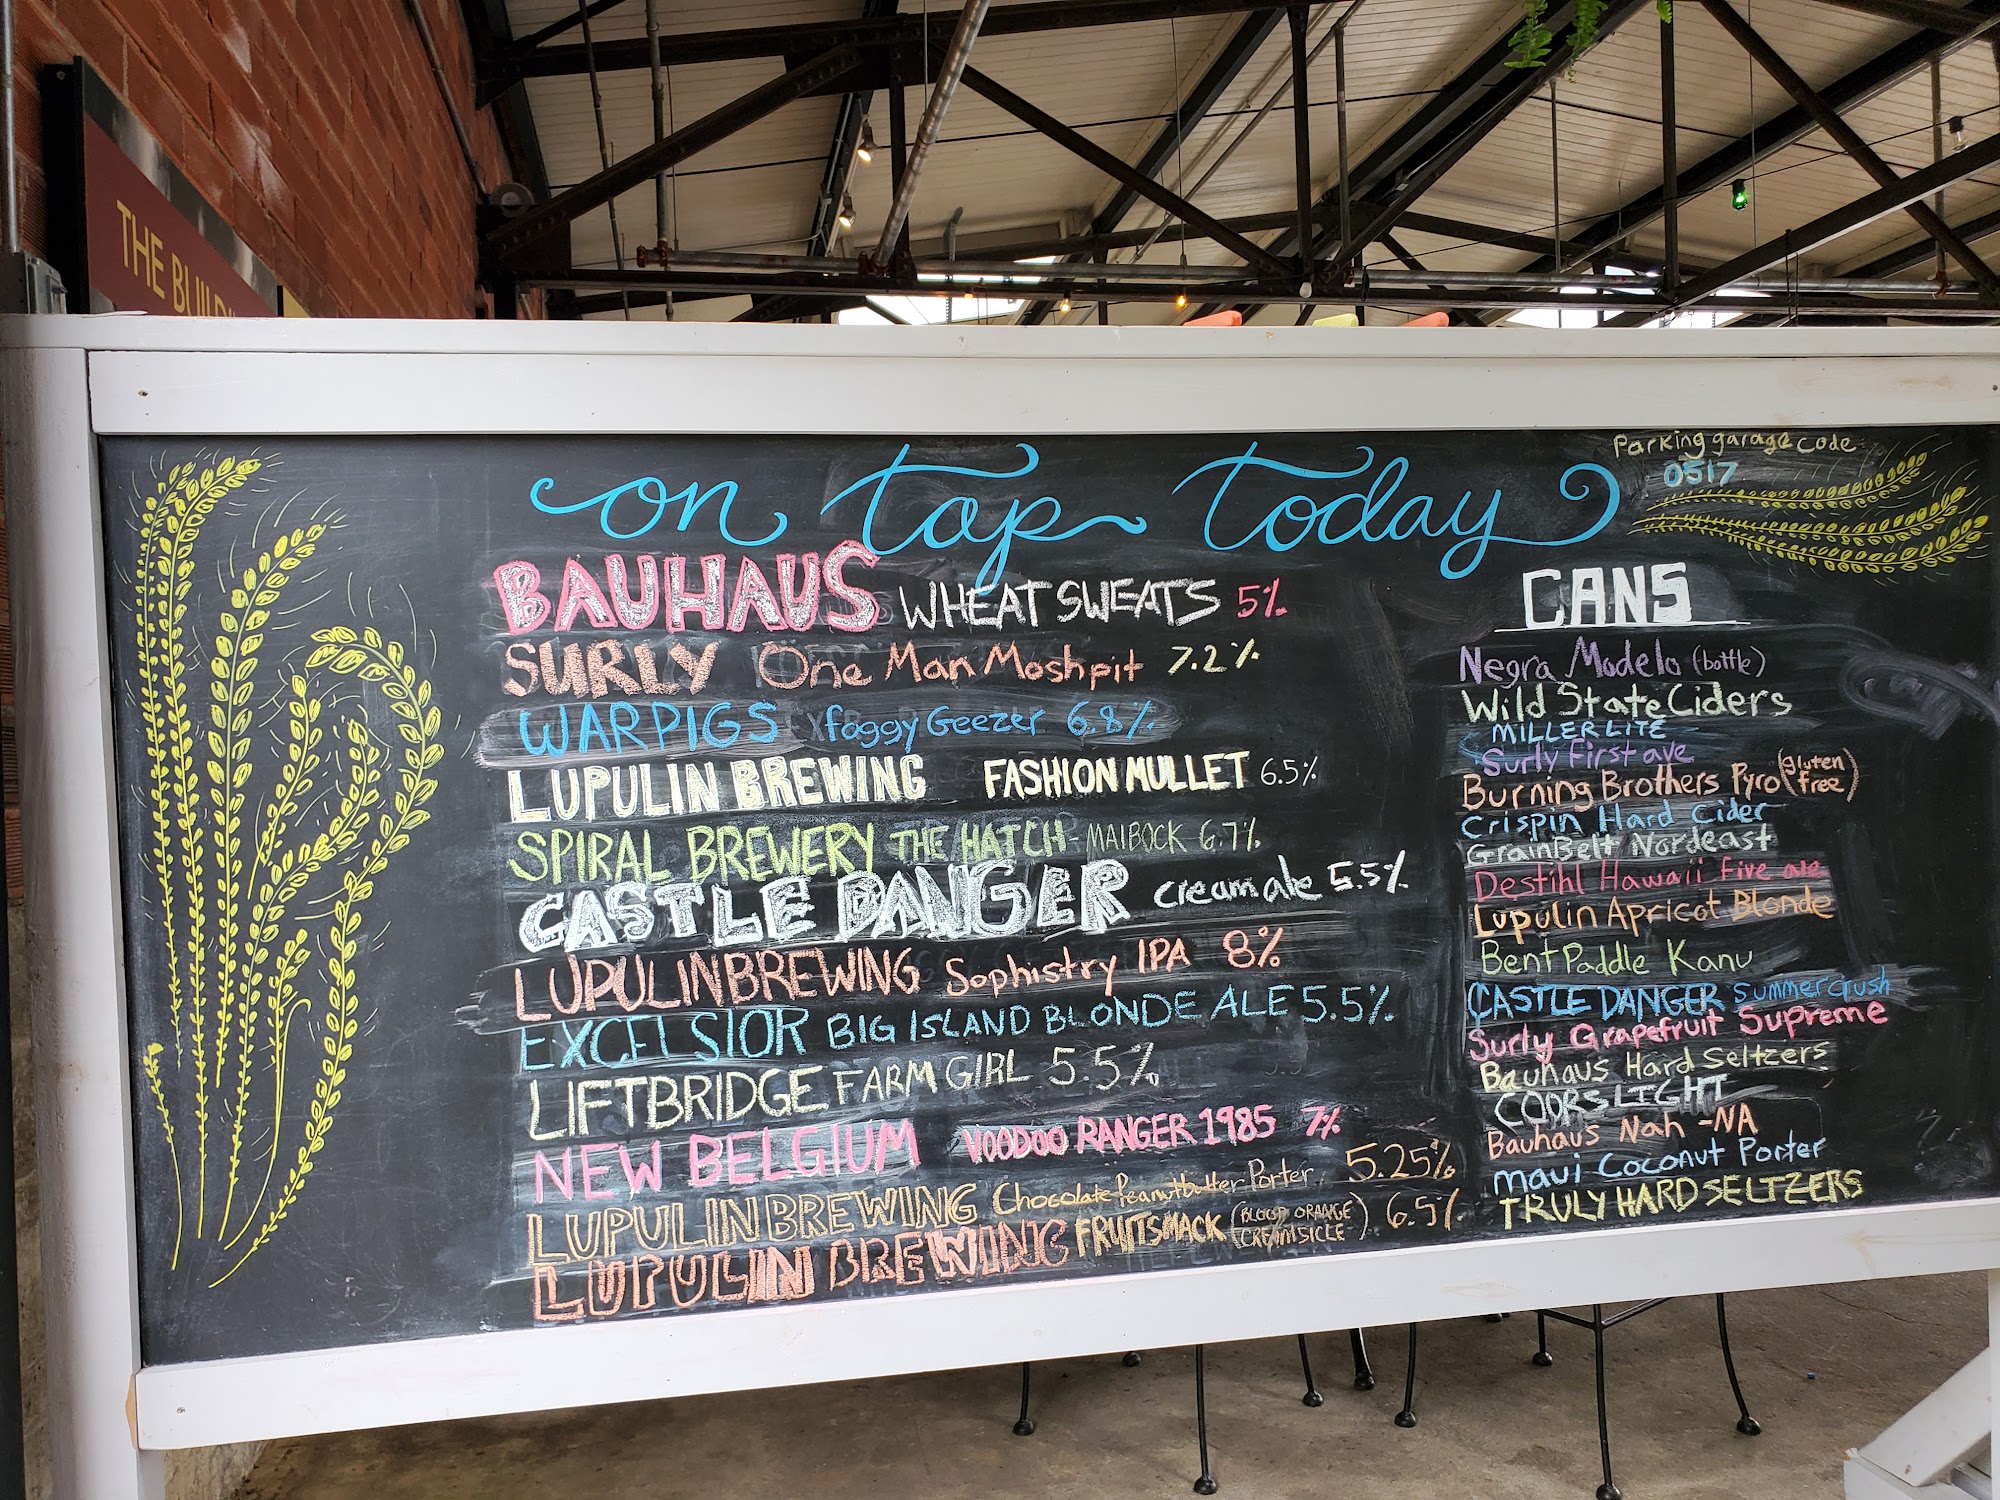 THE BUILD
on tap today
Parking garage code
0517
BAUHAUS WHEAT SWEATS 5%
SURLY One Man Moshpit 7.2%
WARPIGS foggy Geezer 6.8%
LUPULIN BREWING FASHION MULLET 6.5%
SPIRAL BREWERY THE HATCH - MAIBOCK 6.7%
CASTLE DANGER cream ale 5.5%
LUPULIN BREWING Sophistry IPA 8%
EXCELSIOR BIG ISLAND BLONDE ALE 5.5%
LIFTBRIDGE FARM GIRL 5.5%
NEW BELGIUM VOODOO RANGER 1985 7%
LUPULIN BREWING Chocolate Peanutbutter Porter 5.25%
LUPULIN BREWING FRUITSMACK (BLOOD ORANGE CREAMSICLE) 6.5%
CANS
Negra Modelo (bottle)
Wild State Ciders
MILLER LITE
Surly First ave
Burning Brothers Pyro (gluten free)
Crispin Hard Cider
GrainBelt Nordeast
Destihl Hawaii Five ale
Lupulin Apricot Blonde
Bent Paddle Kanu
CASTLE DANGER Summer crush
Surly Grapefruit Supreme
Bauhaus Hard Seltzers
COORS LIGHT
Bauhaus Nah - NA
Maui Coconut Porter
TRULY HARD SELTZERS